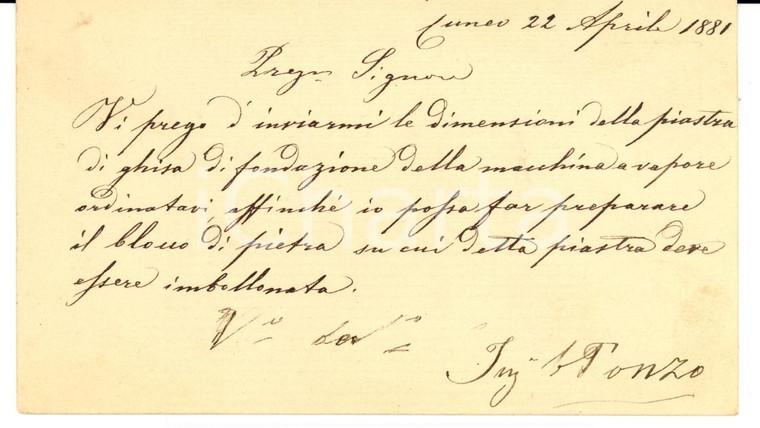 Cuneo 22 Aprile 1881
Preg. Signore
Vi prego d'inviarmi le dimensioni della piastra
di ghisa di fondazione della macchina a vapore
ordinatavi, affinché io possa far preparare
il blocco di pietra su cui detta piastra deve
essere imbollonata.
V° dev°
Ing. Ponzo
iCharta